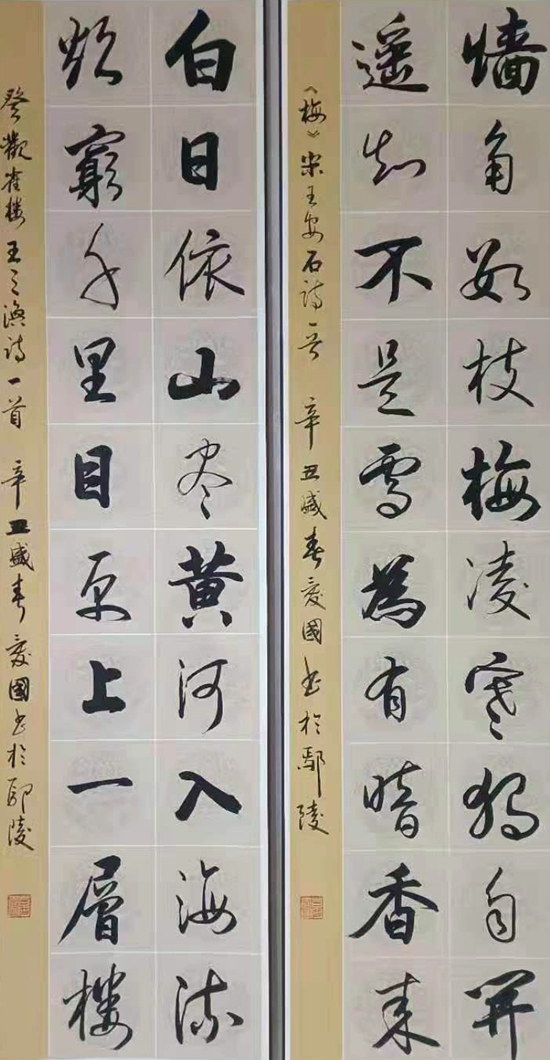 墻角数枝梅凌寒独自開
遥知不是雪為有暗香来
《梅》宋王安石诗一首 辛丑盛春爱國书於鄢陵
白日依山尽黄河入海流
欲窮千里目更上一層楼
登鹳雀楼 王之涣诗一首 辛丑盛春爱國书於鄢陵